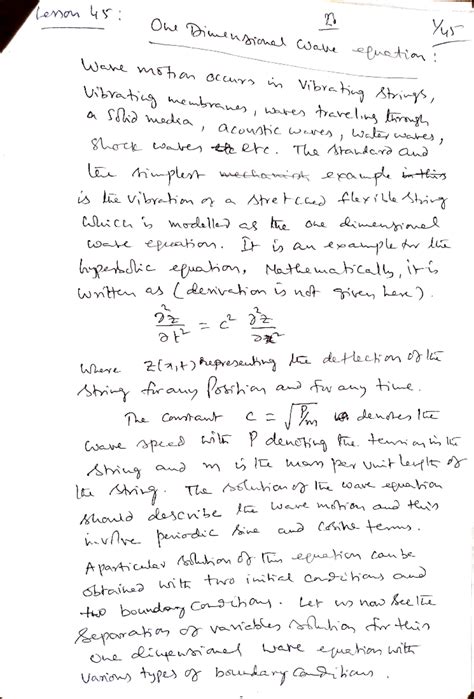 Lesson 45:
1/45
One Dimensional Wave equation:
Wave motion occurs in Vibrating Strings,
Vibrating membranes, waves traveling through
a solid media, acoustic waves, water waves,
Shock waves etc. The Standard and
the simplest mechanist example in this
is the vibration of a stretched flexible string
which is modelled as the one dimensional
wave equation. It is an example for the
hyperbolic equation, Mathematically, it is
written as (derivation is not given here).
∂²z/∂t² = c² ∂²z/∂x²
where z(x,t) representing the deflection of the
string for any Position and for any time.
The constant c = √P/m denotes the
wave speed with P denoting the tension in the
string and m is the mass per unit length of
the string. The solution of the wave equation
should describe the wave motion and this
involve periodic sine and cosine terms.
A particular solution of this equation can be
obtained with two initial conditions and
two boundary conditions. Let us now see the
separation of variables solution for this
one dimensional wave equation with
various types of boundary conditions.